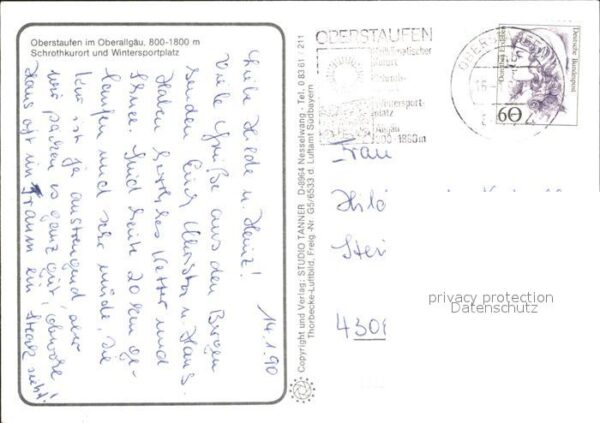 Oberstaufen im Oberallgäu, 800-1800 m
Schrothkurort und Wintersportplatz
14.1.90
Liebe Hilde u. Heinz!
Viele Grüße aus den Bergen
senden Euch Christa u. Hans.
Haben herrliches Wetter und
Schnee. Sind heute 20 km ge-
laufen und sehr müde. Die
Kur ist ja anstrengend, aber
wir packen es ganz gut, obwohl
Hans oft im Traum ein Steak sieht.
Copyright und Verlag: STUDIO TANNER D-8964 Nesselwang - Tel. 0 83 61 / 211
Thorbecke-Luftbild, Freig.-Nr. G5/6533 d. Luftamt Südbayern
OBERSTAUFEN
Wintersport-
platz
Allgäu
800-1800m
Deutsche Bundespost
60
Frau
Hild
Stei
4300
privacy protection
Datenschutz